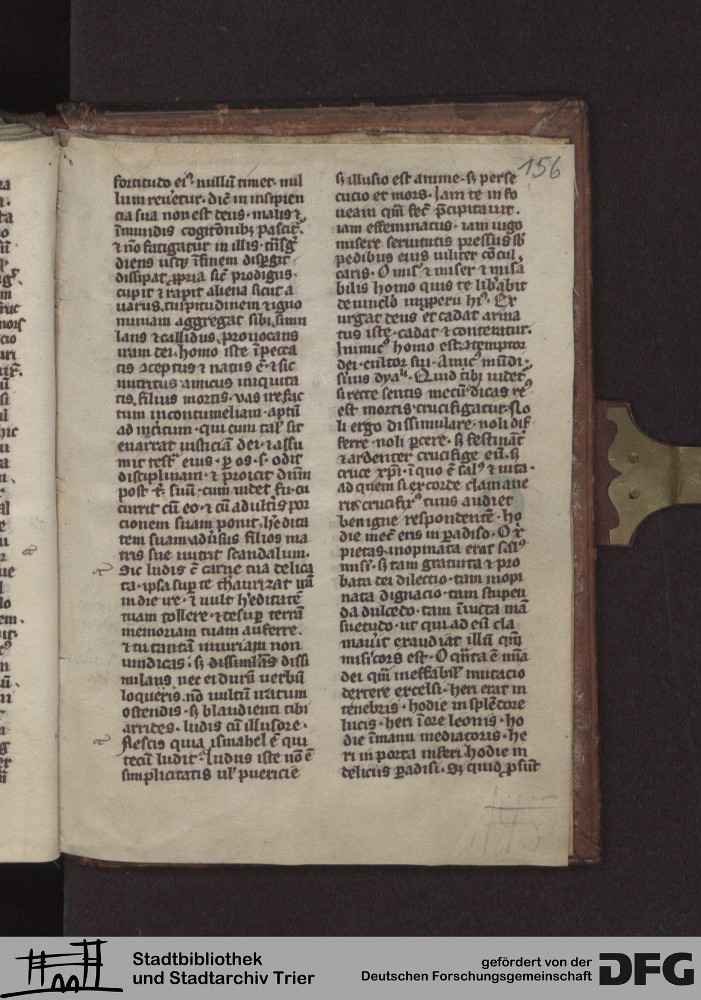 156
fortitudo ei⁹ nullū timet· nul
lum reuetur· dic̄ in insipien
cia sua non est deus· malis ⁊
īmundis cogitōnibꝫ pascit᷑
⁊ nō fatigatur in illis·
diens usqꝫ īfinem
dissipat ꝓpria sic̄ prodigus·
cupit ⁊ rapit aliena sicut a
uarus· turpitudinem ⁊ igno
miniam aggregat sibi· simu
lans ⁊ callidus· prouocans
iram dei· homo iste īpecca
tis ⁊ceptus ⁊ natus ē· ⁊ sic
nutritus· amicus iniquita
tis· filius mortis· vas ire fac
tum incontumeliam· aptū
ad interitum· qui cum tal᷑ sit
enarrat iusticiam dei· ⁊ assu
mit test᷑ eius· ꝑ os· s· odit
disciplinam· ⁊ proicit diuīn
post t᷑· suū· cum uidet fu·cu
currit cū eo· ⁊ cū adultis por
cionem suam ponit· h̓edita
tem suam adūsus filios ma
tris sue nutrit scandalum·
Sic ludis ē carne tua delica
ta· ipsa suꝑ te thaurizat irā
in die ire· ⁊ uult h̓editatē
tuam tollere· ⁊ desuꝑ terrā
memoriam tuam auferre·
⁊ tu tantā iniuriam non
uindicas· sꝫ dissimulās dissi
mulans nec ei durū uerbū
loqueris· nō uultū iratum
ostendis· sꝫ blandienti tibi
arrides· ludis cū illusore·
Nescis quia ismahel ē qui
tecū ludit· ludus iste nō ē
simplicitatis ul̓ puericie
sꝫ illusio est anime· sꝫ perse
cucio et mors· Iam te in fo
ueam quā fec̄ p̄cipitauit·
iam effeminatus· iam iugo
misere seruitutis pressus sb̄
pedibus eius uiliter cōcul
caris· O mis᷑ ⁊ miser ⁊ misa
bilis homo quis te lib̓abit
de uinclō īmproperii hi⁹· Ex
urgat deus et cadat arma
tus iste· cadat ⁊ conteratur·
Inimic⁹ homo est· ⁊temptor
dei· cultor sui· Amic⁹ mūdi·
s̓uus dyaˡⁱ· Quid tibi uidet᷑
si recte sentis mecū dicas re⁹
est mortis· crucifigatur· No
li ergo dissimulare· noli dif
ferre· noli ꝑcere· sꝫ festināt᷑
⁊ ardenter crucifige eū· sꝫ
cruce xp̄i· ī quo ē sal⁹ ⁊ uita·
ad quem si ex corde clamaue
ris crucifix⁹ tuus audiet
benigne respondentē· ho
die mec̄ eris in ꝑadiso· O x̄
pietas· inopinata erat sal⁹
mis̓i· sꝫ tam gratuita ⁊ pro
bata dei dilectio· tam inopi
nata dignacio· tam stupen
da dulcedo· tam īuicta mā
suetudo· ut qui ad eū cla
mauit exaudiat illū qm̄
mis̓icors est· O qn̄ta ē mīa
dei· qm̄ ineffabil᷑ mutacio
dextere excelsi· heri erat in
tenebris· hodie in splēdore
lucis· heri ī ore leonis· ho
die ī manu mediatoris· he
ri in porta inferi· hodie in
deliciis ꝑadisi· Sꝫ quid ꝓsūt
Stadtbibliothek
und Stadtarchiv Trier
gefördert von der
Deutschen Forschungsgemeinschaft
DFG